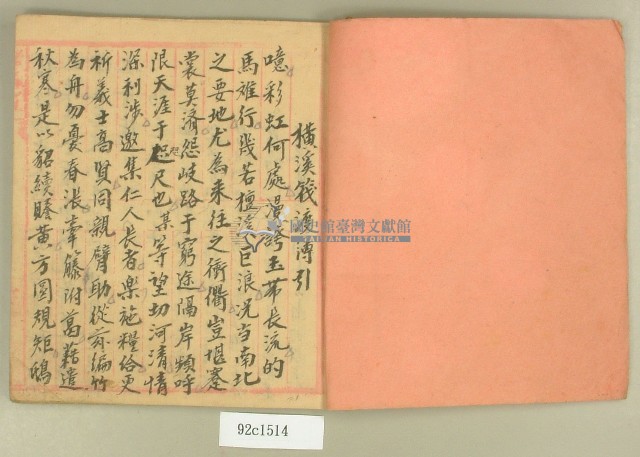 橫溪筏渡簿引
噫彩虹何處漫跨玉帶長流的
馬難行幾若檀溪之巨浪况当南北
之要地尤為来往之衝衢豈堪蹇
裳莫濟怨岐路于窮途隔岸頻呼
限天涯于咫尺也某等望切河清情
深利涉邀集仁人長者樂施糧給更
祈義士高賢同親臂助從茲編竹
為舟勿憂春漲牽籐附葛藉遣
秋寒是以貂續賤黄方圓規矩鴟
國史館臺灣文獻館
TAIWAN HISTORICA
92c1514